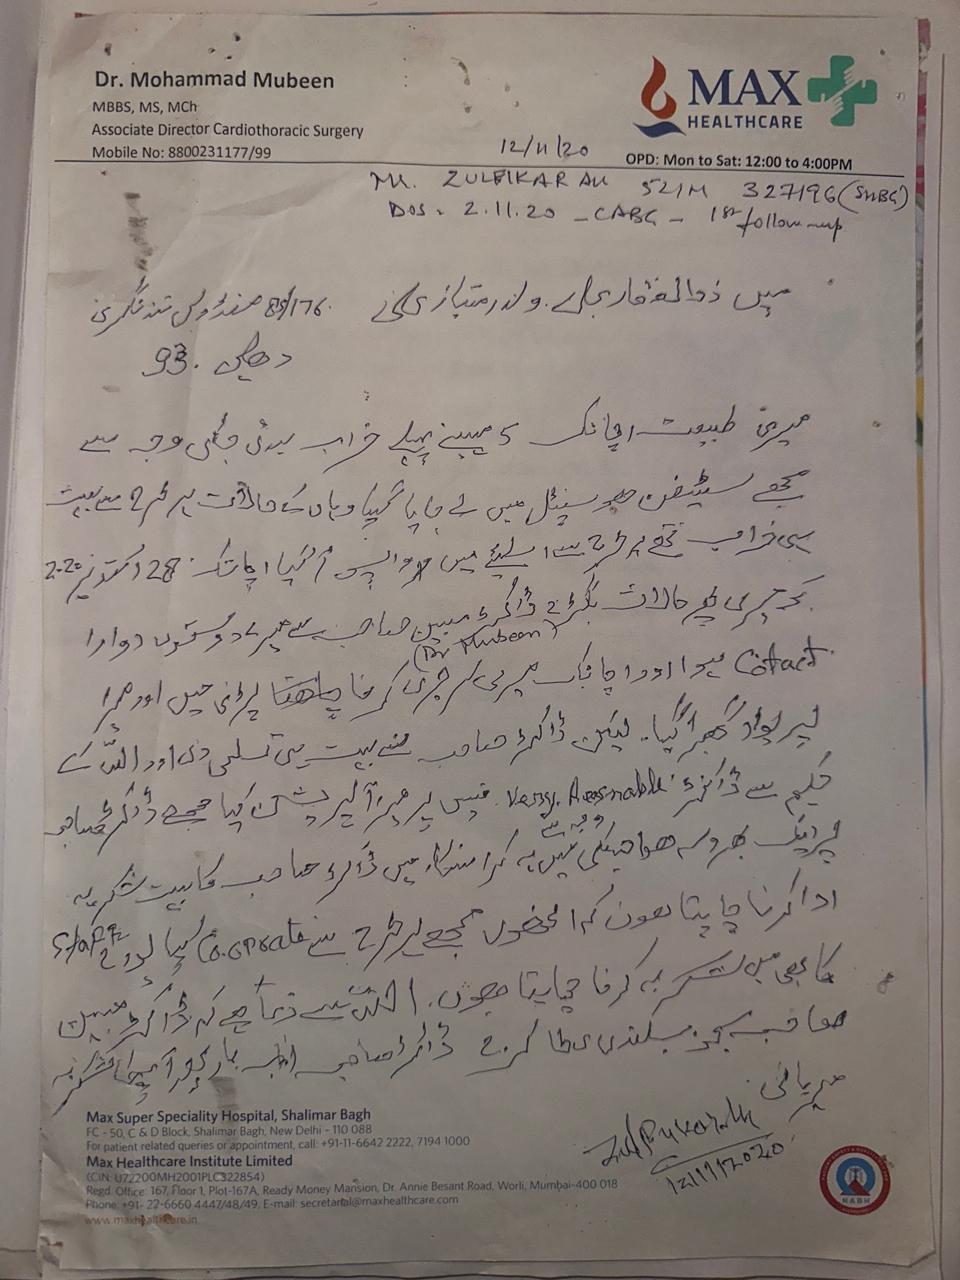 Dr. Mohammad Mubeen
MBBS, MS, MCh
Associate Director Cardiothoracic Surgery
Mobile No: 8800231177/99
MAX
HEALTHCARE
12/11/20
OPD: Mon to Sat: 12:00 to 4:00PM
Mr. ZULFIKAR ALI 52/M 327196 (SHBG)
DOS. 2.11.20 - CABG - 1st follow-up
میں ذوالفقار علی ولد
دھلی. 93
میری طبیعت اچانک 5 مہینے پہلے خراب ہوئی جسکی وجہ سے
مجھے سٹیفن ھوسپٹل میں لے جایا گیا وہاں کے حالات ہر طرح سے بہت
ہی خراب تھے ہر طرح سے اسلیئے میں واپس آ گیا اچانک 28 اکتوبر 2020
پھر حالات بگڑے ڈاکٹر مبین صاحب سے میرے دوستوں دوارا
(Dr Mubeen)
Cotact ہوا اور اچانک میری سرجری کرنا پڑی میں اور میرا
پریوار گھبرا گیا. لیکن ڈاکٹر صاحب نے بہت ہی تسلی دی اور اللہ کے
حکم سے ڈاکٹر Very. Resnable فیس پر میرا آپریشن کیا مجھے ڈاکٹر صاحب
پر بھروسہ ھوا جسکی وجہ سے میں یہ کرا سکا. میں ڈاکٹر صاحب کا بہت شکریہ
ادا کرنا چاہتا ھوں کہ انھوں مجھے ہر طرح سے Co.oprate کیا پورے Staff
کا بھی میں شکریہ کرنا چاہتا ھوں. اللہ سے دعا ہے کہ ڈاکٹر مبین
صاحب بلندی عطا کرے ڈاکٹر صاحب ایک بار پھر آپکا شکریہ
مہربانی
Zulfukar Ali
12/11/2020
Max Super Speciality Hospital, Shalimar Bagh
FC - 50, C & D Block, Shalimar Bagh, New Delhi - 110 088
For patient related queries or appointment, call: +91-11-6642 2222, 7194 1000
Max Healthcare Institute Limited
(CIN: U72200MH2001PLC322854)
Regd. Office: 167, Floor 1, Plot-167A, Ready Money Mansion, Dr. Annie Besant Road, Worli, Mumbai-400 018
Phone: +91- 22-6660 4447/48/49, E-mail: secretarial@maxhealthcare.com
www.maxhealthcare.in
NABH